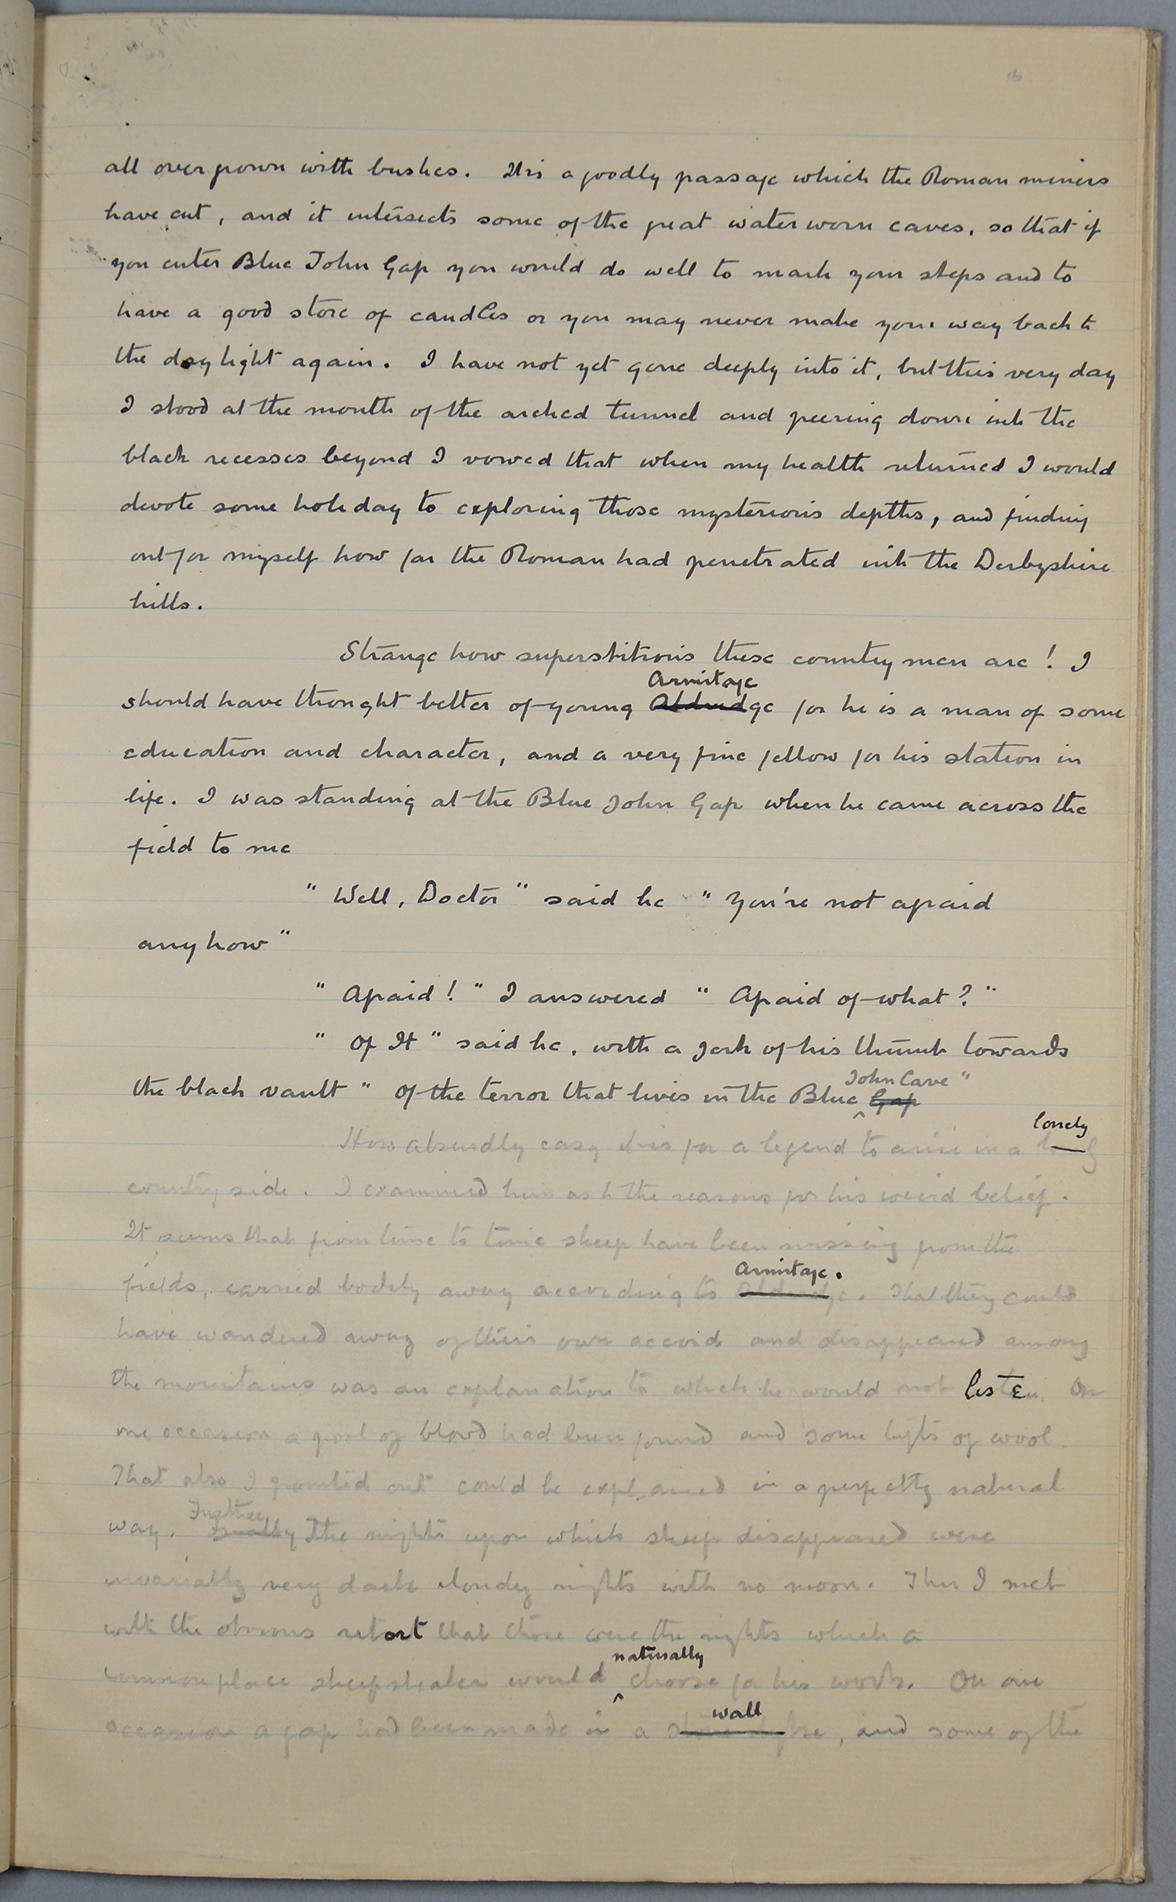 all overgrown with bushes. It is a goodly passage which the Roman miners
have cut, and it intersects some of the great water worn caves, so that if
you enter Blue John Gap you would do well to mark your steps and to
have a good store of candles or you may never make your way back to
the daylight again. I have not yet gone deeply into it, but this very day
I stood at the mouth of the arched tunnel and peering down into the
black recesses beyond I vowed that when my health returned I would
devote some holiday to exploring those mysterious depths, and finding
out for myself how far the Roman had penetrated into the Derbyshire
hills.
Strange how superstitious these countrymen are! I
Armitage
should have thought better of young Aldridge for he is a man of some
education and character, and a very fine fellow for his station in
life. I was standing at the Blue John Gap when he came across the
field to me
"Well, Doctor" said he "You're not afraid
anyhow"
"Afraid!" I answered "Afraid of what?"
"Of It" said he, with a jerk of his thumb towards
John Cave"
the black vault "Of the terror that lives in the Blue Gap
lonely
How absurdly easy it is for a legend to arise in a
country side. I examined him as to the reasons for his weird belief.
It seems that from time to time sheep have been missing from the
Armitage.
fields, carried bodily away according to Aldridge. That they could
have wandered away of their own accord and disappeared among
the mountains was an explanation to which he would not listen. On
one occasion a pool of blood had been found and some tufts of wool.
That also I pointed out could be explained in a perfectly natural
Further
way. The nights upon which sheep disappeared were
invariably very dark cloudy nights with no moon. This I met
with the obvious retort that those were the nights which a
naturally
commonplace sheepstealer would choose for his work. On one
wall
occasion a gap had been made in a , and some of the